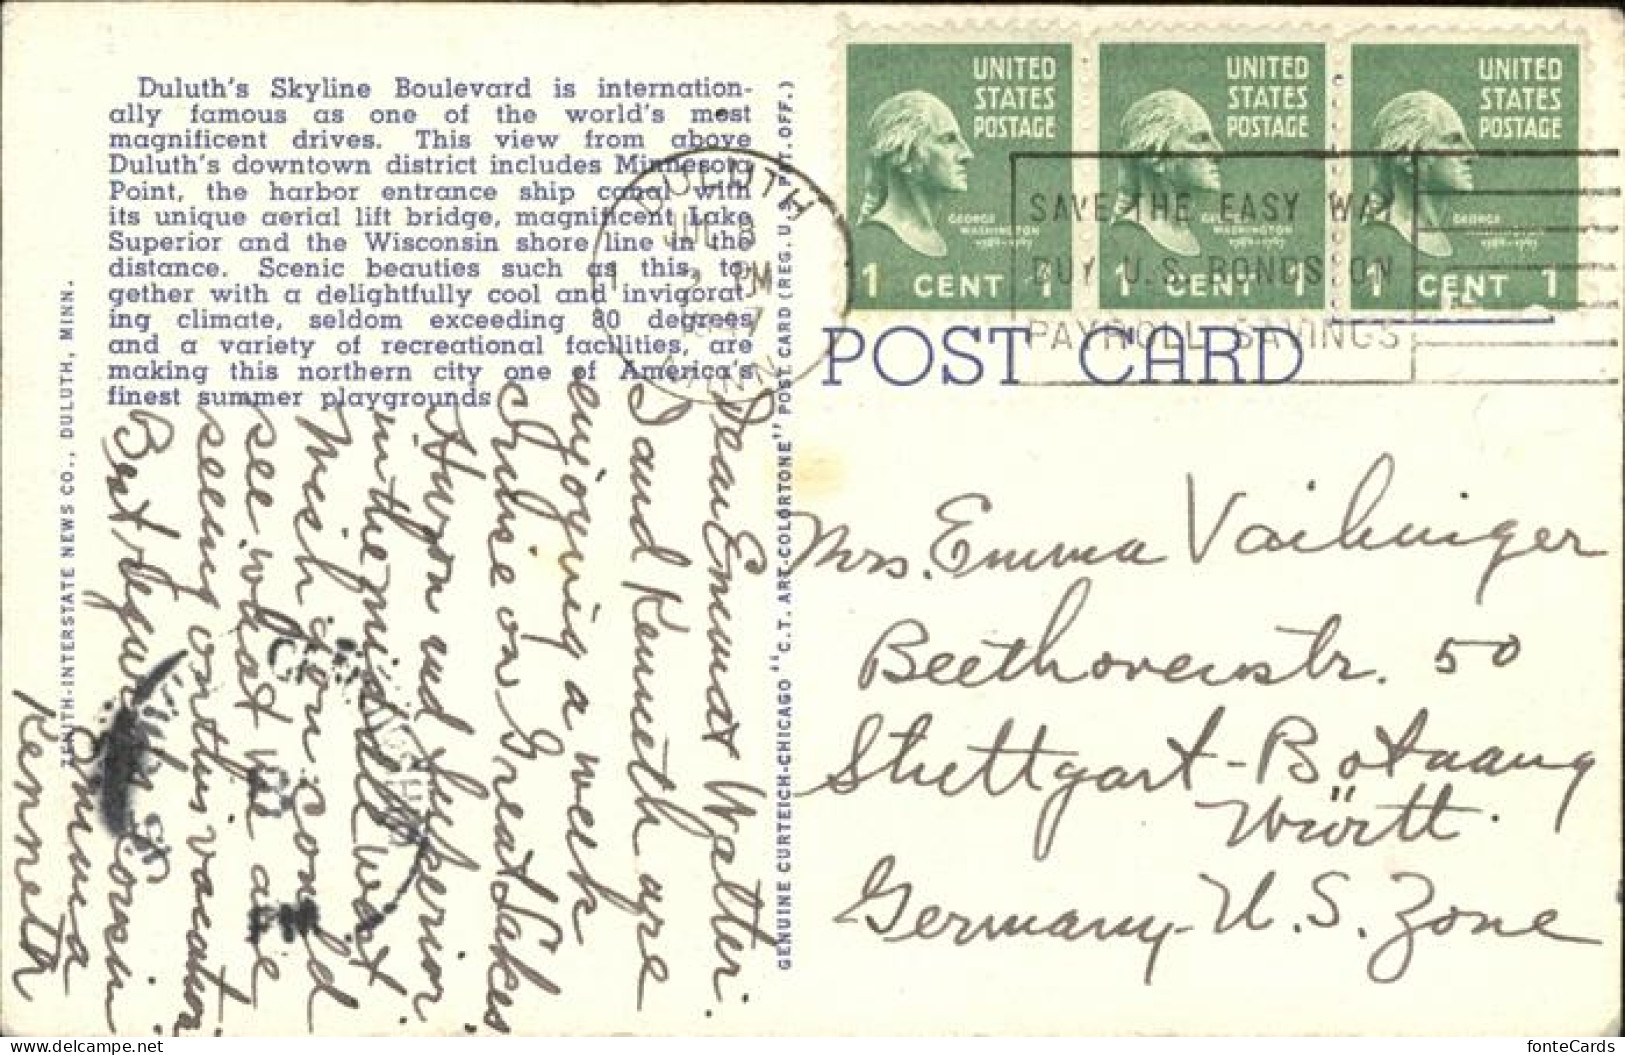 Duluth's Skyline Boulevard is internation-
ally famous as one of the world's most
magnificent drives. This view from above
Duluth's downtown district includes Minnesota
Point, the harbor entrance ship canal with
its unique aerial lift bridge, magnificent Lake
Superior and the Wisconsin shore line in the
distance. Scenic beauties such as this, to-
gether with a delightfully cool and invigorat-
ing climate, seldom exceeding 80 degrees
and a variety of recreational facilities, are
making this northern city one of America's
finest summer playgrounds
ZENITH-INTERSTATE NEWS CO., DULUTH, MINN.
GENUINE CURTEICH-CHICAGO "C.T. ART-COLORTONE" POST CARD (REG. U.S. PAT. OFF.)
Dear Emma & Walter.
I and Kenneth are
enjoying a week
Cruise on Great Lakes
Huron and Superior
in the middle West
Wish you could
see what we are
seeing on this vacation
Best Regards Cousin
Emma
Kenneth
UNITED
STATES
POSTAGE
GEORGE
WASHINGTON
1789-1797
1 CENT 1
UNITED
STATES
POSTAGE
GEORGE
WASHINGTON
1789-1797
1 CENT 1
UNITED
STATES
POSTAGE
GEORGE
WASHINGTON
1789-1797
1 CENT 1
DULUTH
PM
MINN
SAVE THE EASY WAY
BUY U.S. BONDS ON
PAYROLL SAVINGS
POST CARD
Mrs. Emma Vaihinger
Beethovenstr. 50
Stuttgart-Botnang
Württ.
Germany-U.S. Zone
fonteCards